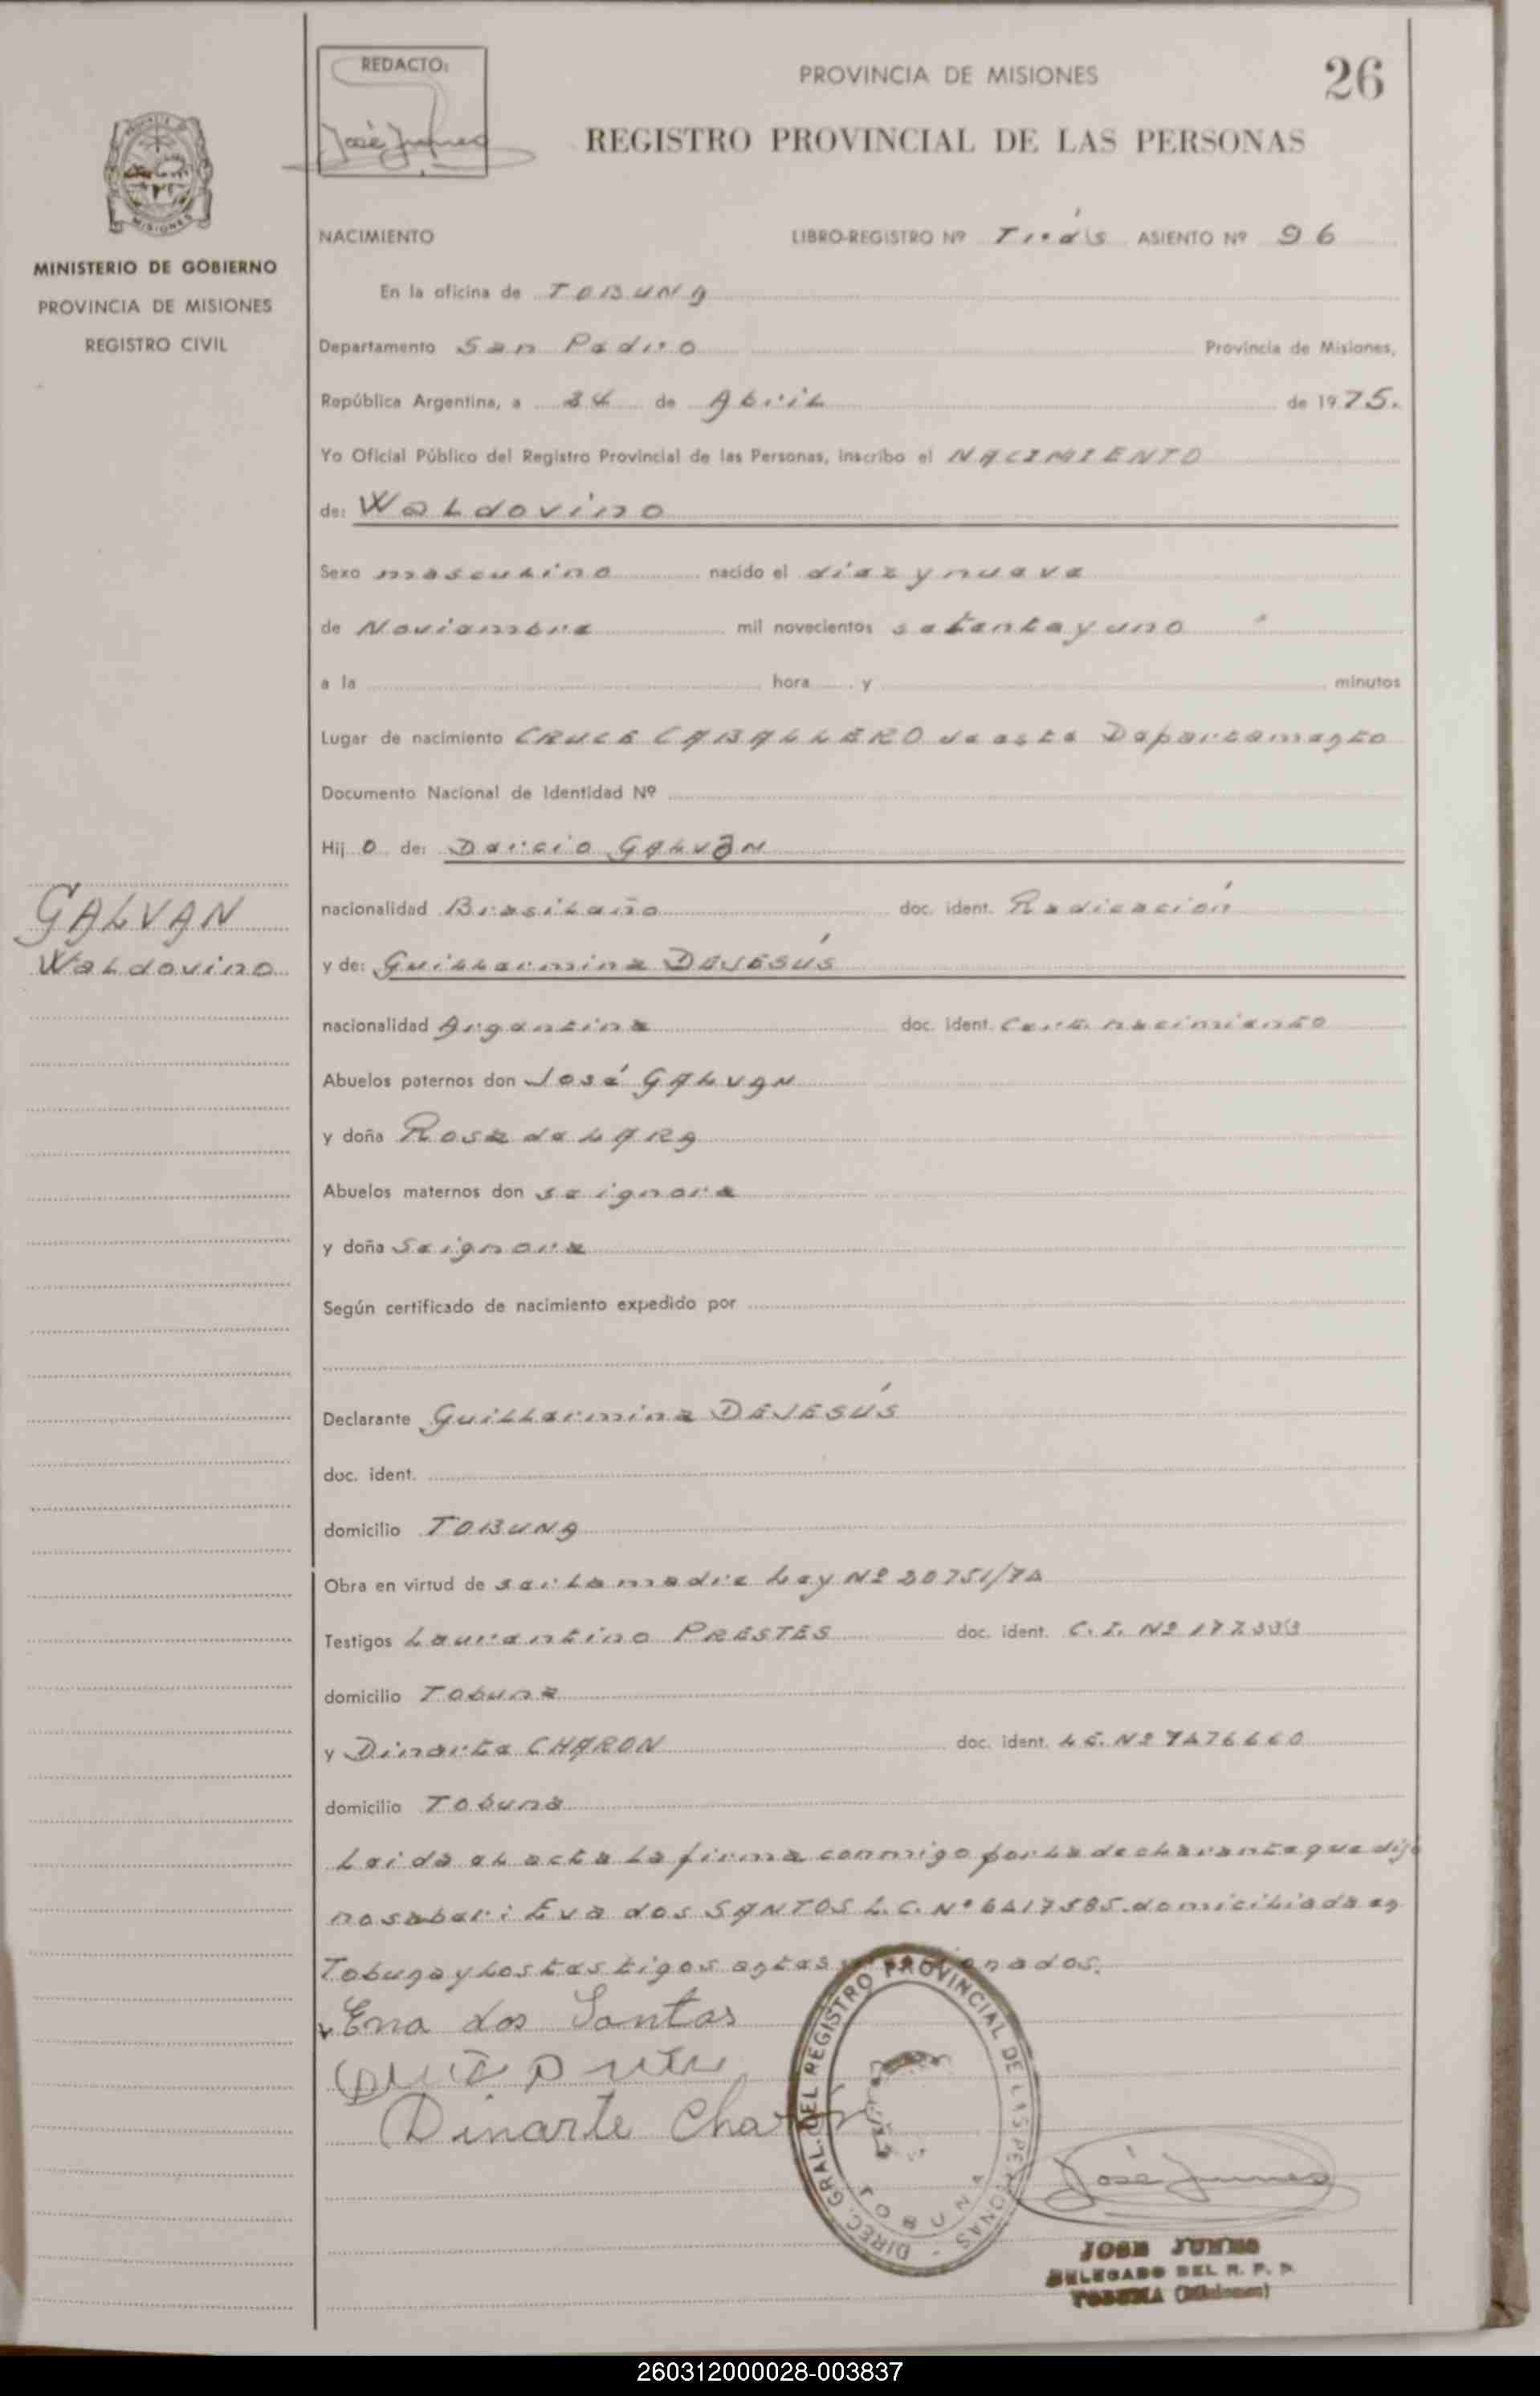 REDACTO:
PROVINCIA DE MISIONES
26
REGISTRO PROVINCIAL DE LAS PERSONAS
MISIONES
MINISTERIO DE GOBIERNO
PROVINCIA DE MISIONES
REGISTRO CIVIL
NACIMIENTO LIBRO-REGISTRO Nº ASIENTO Nº 96
En la oficina de TOBUNA
Departamento San Pedro Provincia de Misiones,
República Argentina, a 24 de Abril de 1975.
Yo Oficial Público del Registro Provincial de las Personas, inscribo el NACIMIENTO
de: Waldovino
Sexo masculino nacido el diez y nueve
de Noviembre mil novecientos setenta y uno
a la hora y minutos
Lugar de nacimiento CRUCE CABALLERO de este Departamento
Documento Nacional de Identidad Nº
Hij o de: Darcio GALVAN
GALVAN
Waldovino
nacionalidad Brasileño doc. ident. Radicación
y de: Guillermina DEJESÚS
nacionalidad Argentina doc. ident. Cert. nacimiento
Abuelos paternos don José GALVAN
y doña Rosa de LARA
Abuelos maternos don se ignora
y doña Se ignora
Según certificado de nacimiento expedido por
Declarante Guillermina DEJESÚS
doc. ident.
domicilio TOBUNA
Obra en virtud de ser la madre Ley Nº 20751/74
Testigos Laurentino PRESTES doc. ident. C. I. Nº
domicilio Tobuna
y Dinarte CHARON doc. ident. L.E. Nº 7476660
domicilio Tobuna
Leida el acta la firma conmigo por la declarante que dijo
no saber: Eva dos SANTOS L. C. Nº 6417585 domiciliada en
Tobuna y los testigos antes
Eva dos Santos
Dinarte Charon
DIREC. GRAL. DEL REGISTRO PROVINCIAL DE LAS PERSONAS - TOBUNA
JOSE JUNES
DELEGADO DEL R. P. P.
TOBUNA (Misiones)
260312000028-003837